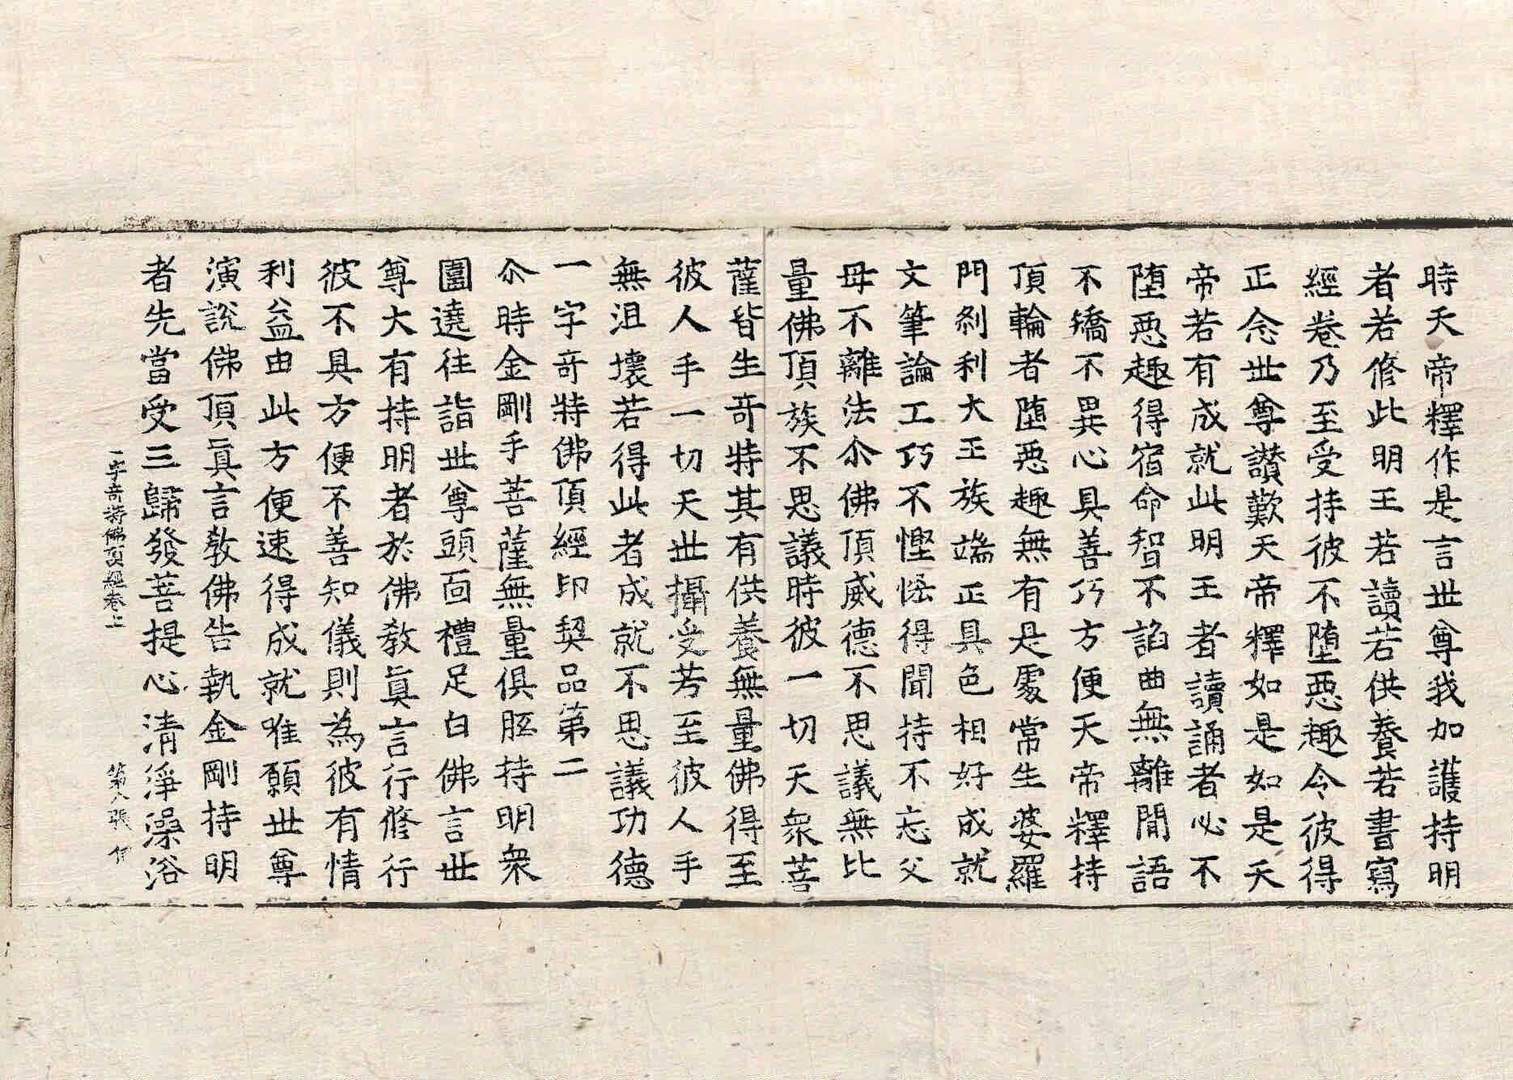 時天帝釋作是言世尊我加護持明
者若修此明王若讀若供養若書寫
經卷乃至受持彼不墮惡趣令彼得
正念世尊讃歎天帝釋如是如是天
帝若有成就此明王者讀誦者必不
墮惡趣得宿命智不諂曲無離間語
不矯不異心具善巧方便天帝釋持
頂輪者墮惡趣無有是處常生婆羅
門刹利大王族端正具色相好成就
文筆論工巧不慳悋得聞持不忘父
母不離法尒佛頂威德不思議無比
量佛頂族不思議時彼一切天衆菩
薩皆生奇特其有供養無量佛得至
彼人手一切天世攝受若至彼人手
無沮壞若得此者成就不思議功德
一字奇特佛頂經印契品第二
尒時金剛手菩薩無量俱胝持明衆
圍遶往詣世尊頭面禮足白佛言世
尊大有持明者於佛教眞言行修行
彼不具方便不善知儀則為彼有情
利益由此方便速得成就唯願世尊
演說佛頂眞言教佛告執金剛持明
者先當受三歸發菩提心清淨澡浴
一字奇特佛頂經卷上 第八張 伊